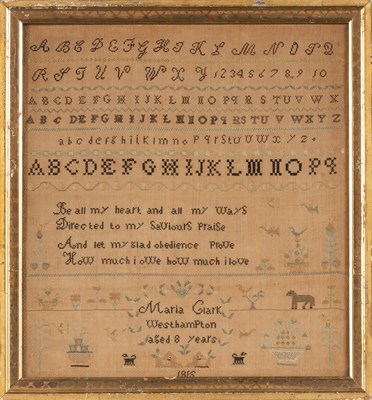 A B C D E F G H I K L M N O P Q
R S T U V W X Y 1 2 3 4 5 6 7 8 9 10
A B C D E F G H I J K L M N O P q R S T U V W X
A B C D E F G H I J K L M I O P q R S T U V W X Y Z
a b c d e f g h i l k l m n o p q r s t u v w x y z
A B C D E F G H I J K L M I O P q
Be all my heart and all my ways
Directed to my Saviours Praise
And let my glad obedience Prove
How much i owe how much i love
Maria Clark
Westhampton
aged 8 years
1815